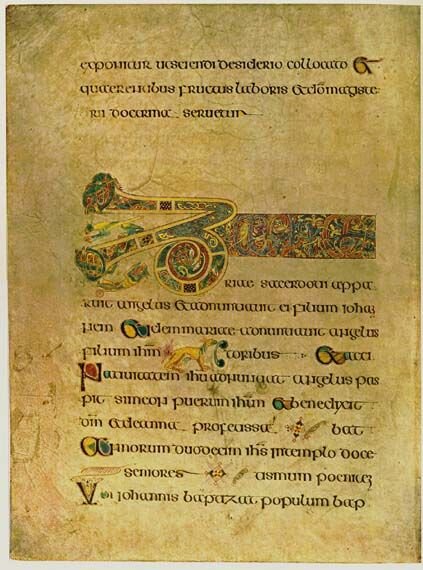 exponitur ut sciendi desiderio collocato &
quaerentibus fructus laboris & magiste
rii doctrina seruetur
Zriae sacerdoti appa
ruit angelus & adnuntiauit ei filium iohan
nem mariae adnuntiauit angelus
filium ihm toribus Et acci
Natiuitatem ihu adnuntiat angelus pas
pit simeon puerum ihm & benedixit
dm et de anna profetissa bat
Annorum duodecim ihs in templo doce
seniores tismum
Vbi iohannis baptizat populum bap